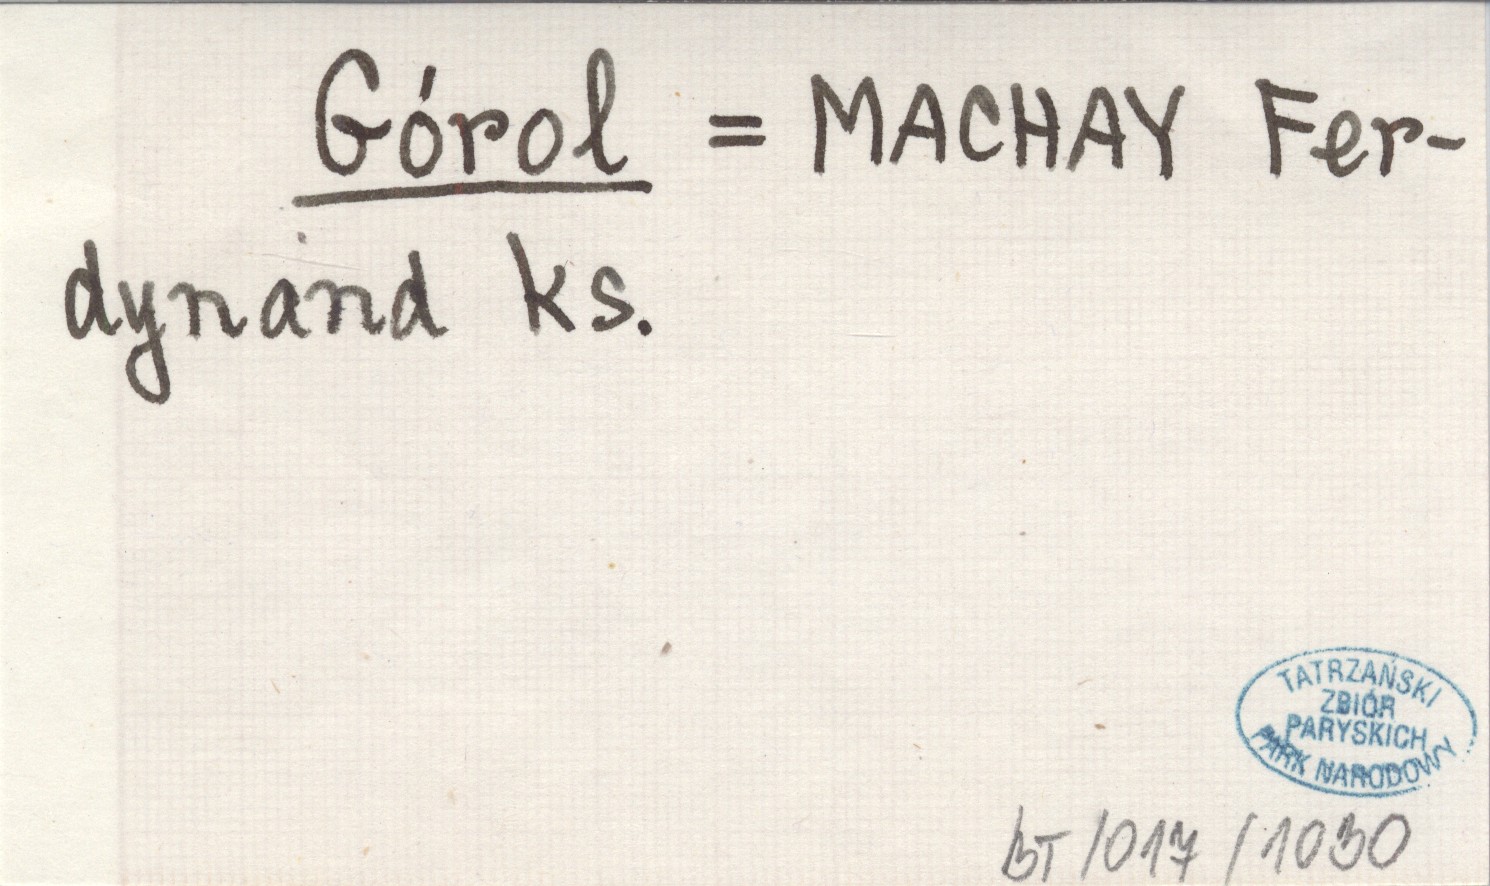 Górol = MACHAY Fer-
dynand ks.
TATRZAŃSKI
ZBIÓR
PARYSKICH
PARK NARODOWY
BT/017/1030